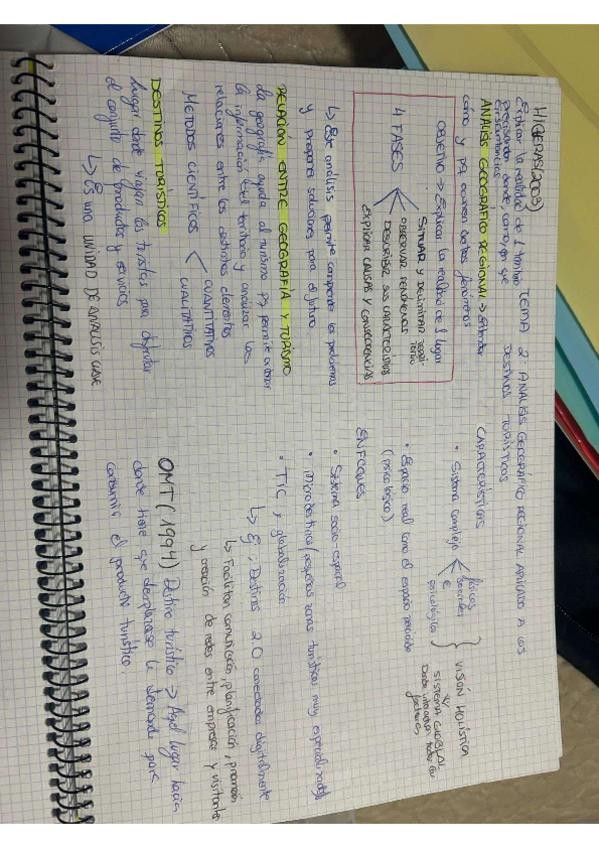 HIGERAS(2003)
Explicar la realidad de 1 territorio
precisando donde, como, en que
circunstancias
TEMA 2: ANALISIS GEOGRÁFICO REGIONAL APLICADO A LOS
DESTINOS TURISTICOS
ANALISIS GEOGRAFICO REGIONAL → Entender
como y pq ocurren ciertos fenómenos
OBJETIVO → Explicar la realidad de 1 lugar
4 FASES
SITUAR Y DELIMITAR TERRI-
TORIO
OBSERVAR FENOMENOS
DESCRIBIR SUS CARACTERISTICAS
EXPLICAR CAUSAS Y CONSECUENCIAS
↳ Este analisis permite comprender los problemas
y proponer soluciones para el futuro
RELACION ENTRE GEOGRAFÍA Y TURISMO
La geografia ayuda al turismo pq permite
la información del territorio y analizar las
relaciones entre los distintos elementos
METODOS CIENTIFICOS
CUANTITATIVOS
CUALITATIVOS
DESTINOS TURISTICOS
Lugar donde viajan los turistas para disfrutar
el conjunto de productos y servicios
↳ Es una UNIDAD DE ANALISIS CLAVE
CARACTERISTICAS
• Sistema complejo
físicos
sociales
e
psicológica
VISIÓN HOLÍSTICA
SISTEMA GLOBAL:
Donde interactuan todos los
factores
• Espacio real como el espacio percibido
(psicologico)
ENFOQUES
• Sistema socio espacial
• Microdestinos (pequeñas zonas turisticas muy especializadas)
• TIC y globalización
↳ Ej: Destinos 2.0 conectados digitalmente
↳ Facilitan comunicación, planificación, promoción
y creación de redes entre empresas y visitantes
OMT (1994) Destino turístico → Aquel lugar hacia
donde tiene que desplazarse la demanda para
consumir el producto turístico.